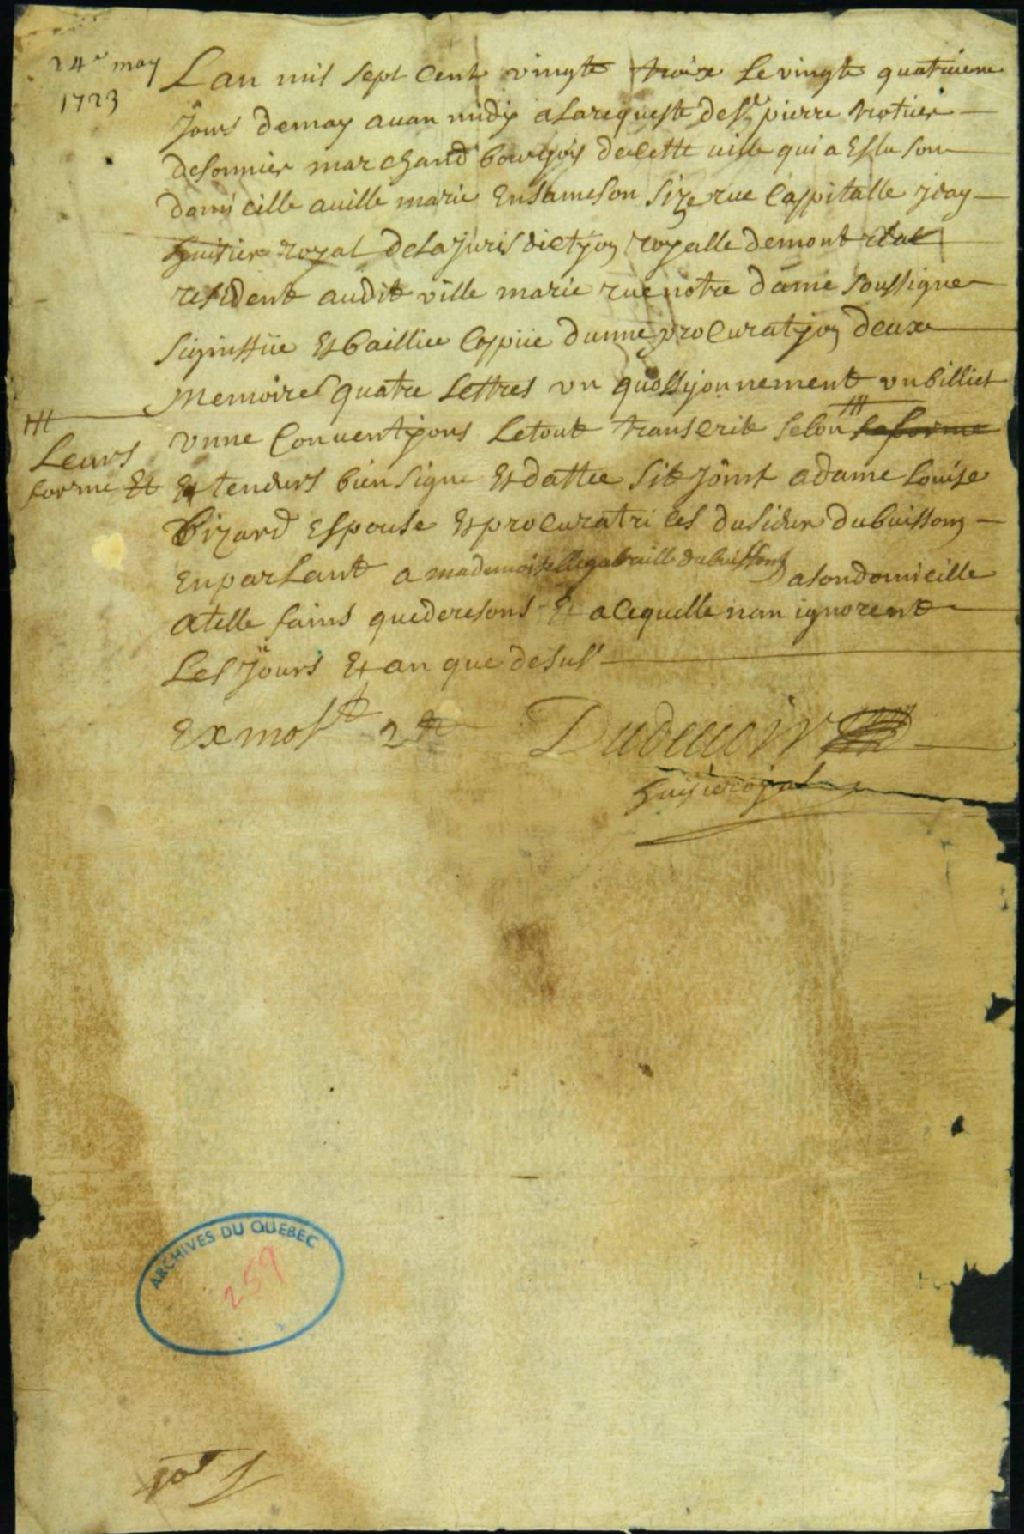 24e may
1723
Lan mil sept Cent vingte troixe Le vingte quatrieme
Jours demay auan midy a Larequeste de Sr pierre trotier
desonnier marchand bourgois de Cette ville qui a Eslu son
domicille auille marie Ensameson Size rue Cappitalle Jean
huisier royal dela Jurisdictjon royalle demont real
resident audit ville marie rue notre dame soussigne
siginffiie Et baillier Coppiie dunne procuratjon deux
Memoires quatre Lettres un quossyonnement un billiet
unne Conuentjons Letout transcrit selon laforme
///
Leurs
forme Et
Et teneurs bien signe Et dattee sit Joint a dame Louise
Bizard Espouse Et procuratrices dusieur dubuissons
En parlant a mademoiselle gabraille dubuissons asondomicille
Atelle fains quederesons Et acequelle nan ignorent
Les Jours Et an que desus
Exmost 2#
Dudeuoir
huisieroyal
ARCHIVES DU QUEBEC
259